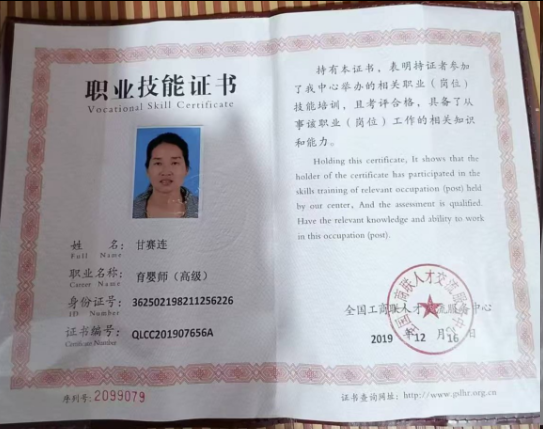 职业技能证书
Vocational Skill Certificate
姓名：甘赛连
Full Name
职业名称：育婴师（高级）
Career Name
身份证号：362502198211256226
ID Number
证书编号：QLCC201907656A
Certificate Number
序列号：2099079
持有本证书，表明持证者参加
了我中心举办的相关职业（岗位）
技能培训，且考评合格，具备了从
事该职业（岗位）工作的相关知识
和能力。
Holding this certificate, It shows that the
holder of the certificate has participated in the
skills training of relevant occupation (post) held
by our center, And the assessment is qualified.
Have the relevant knowledge and ability to work
in this occupation (post).
全国工商联人才交流服务中心
2019 年 12 月 16 日
证书查询网址：http://www.gslhr.org.cn